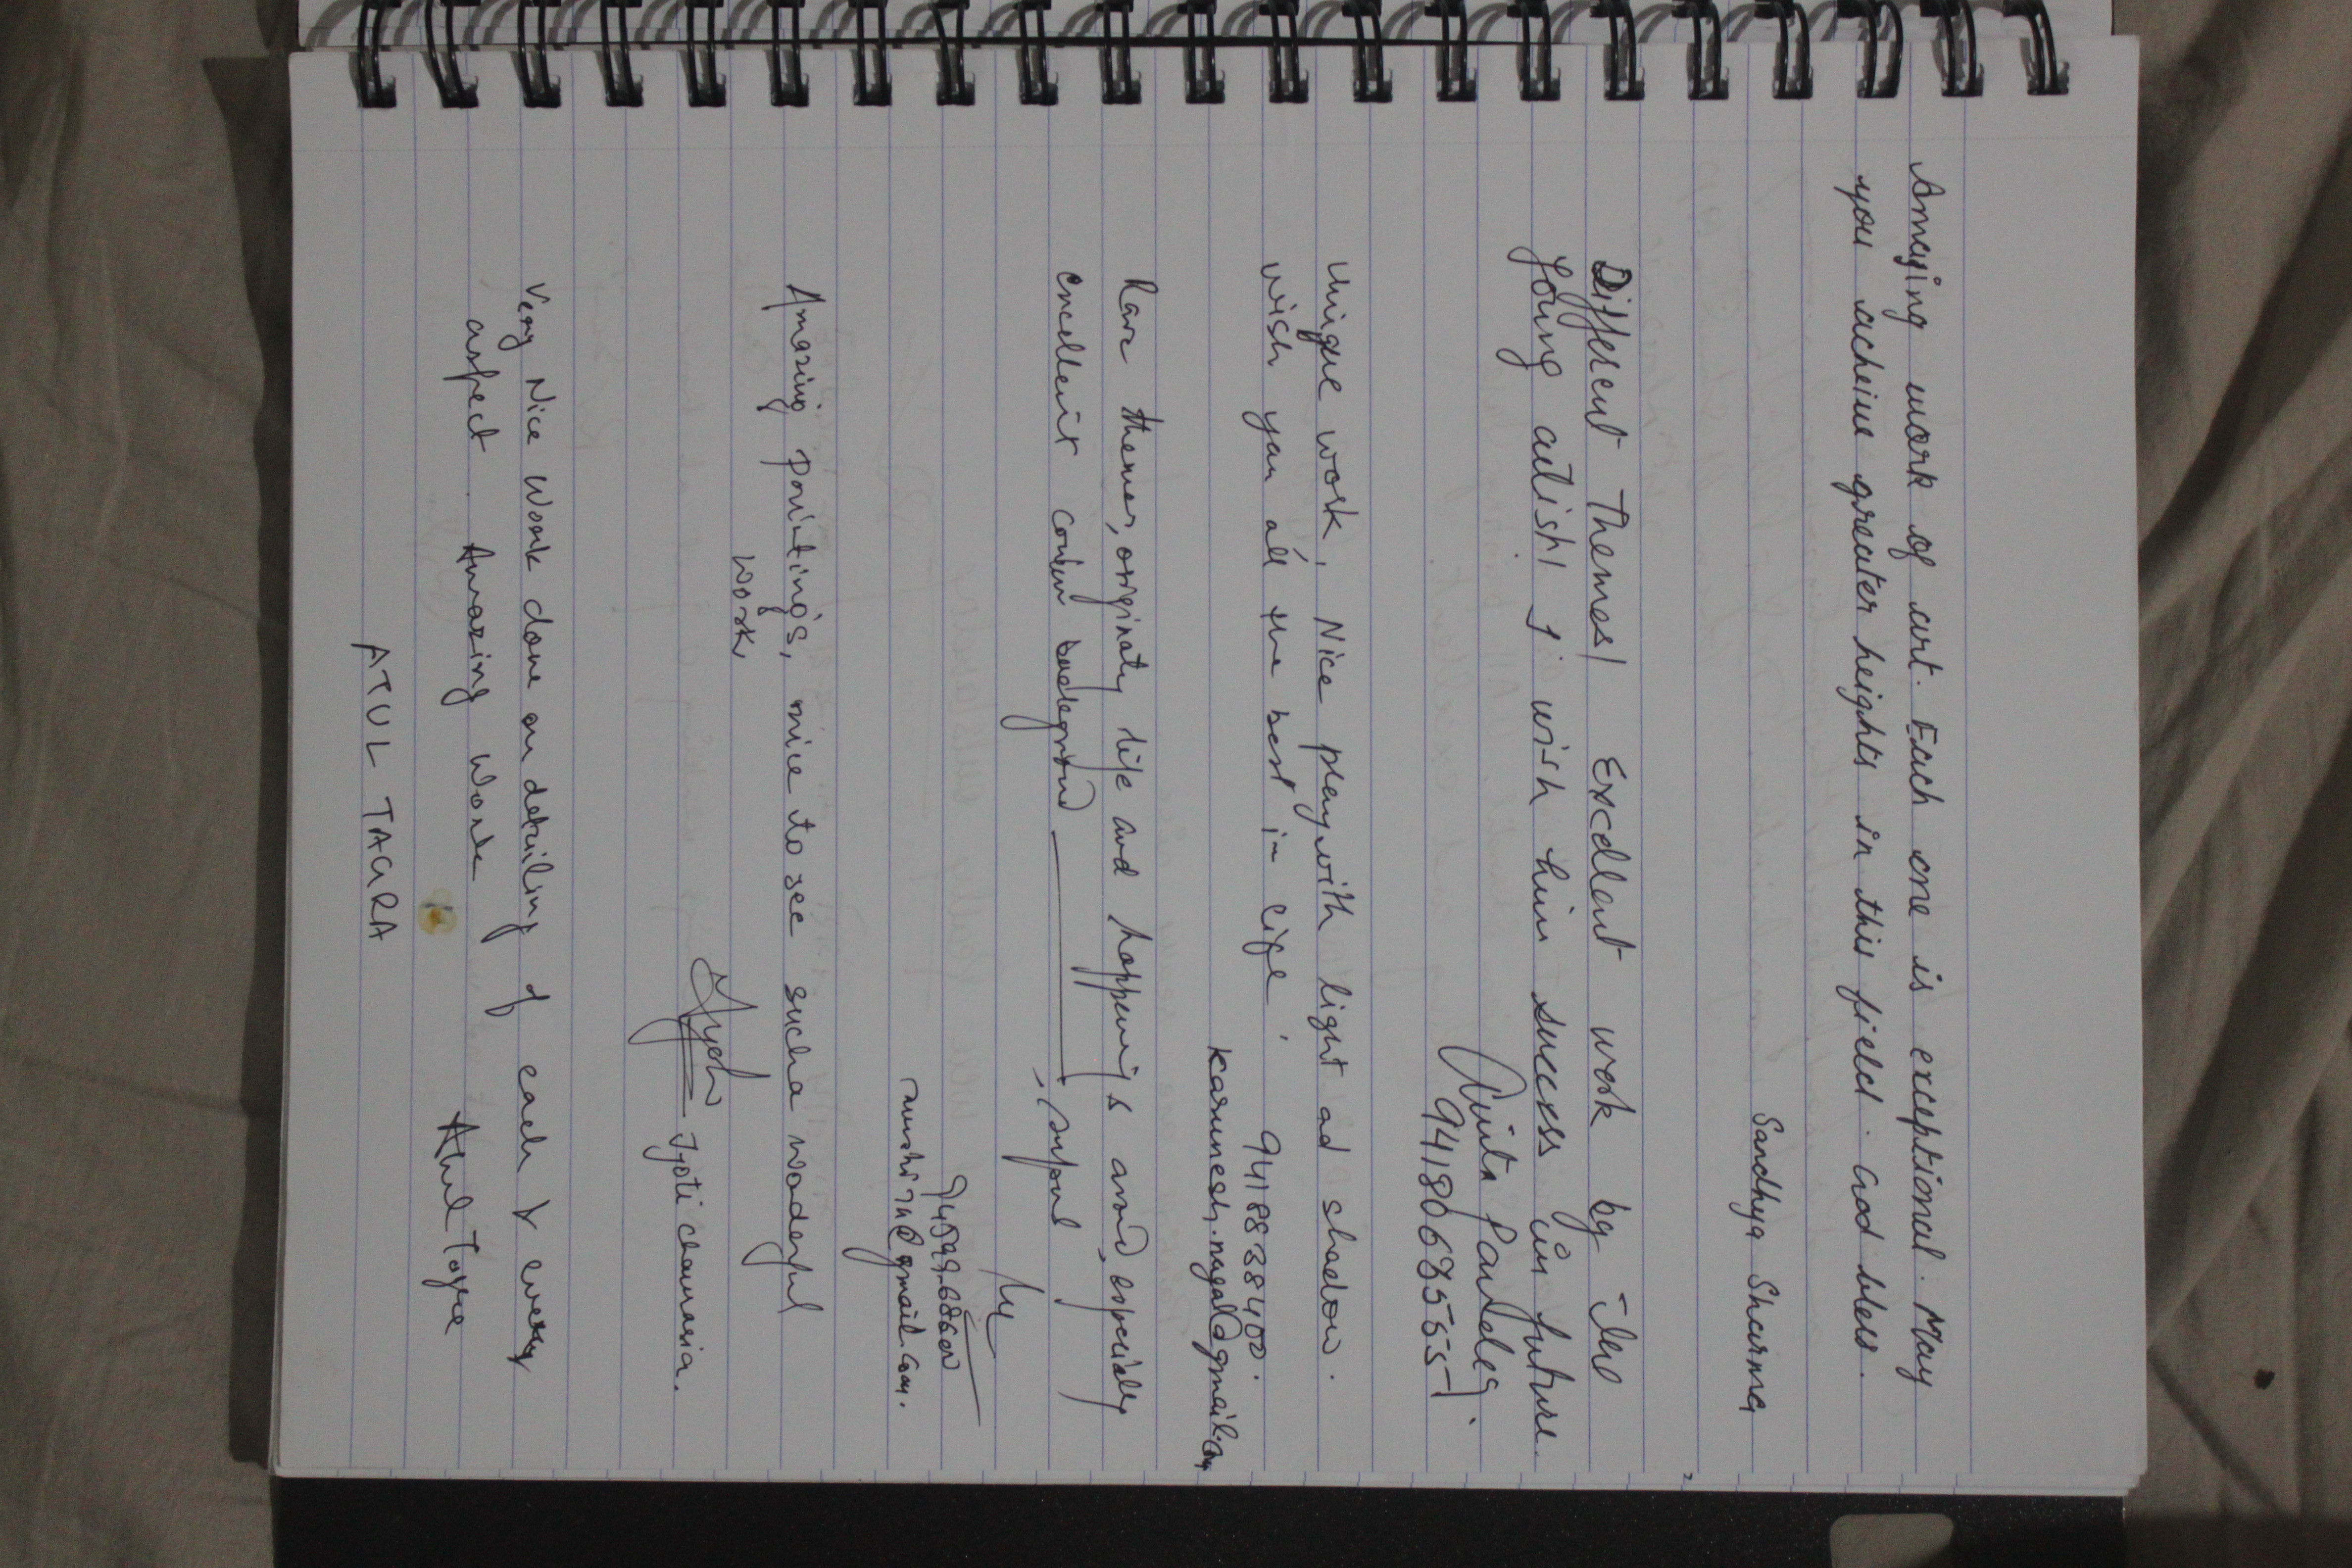 Amazing work of art. Each one is exceptional. May
you acheive greater heights in this field. God bless.
Sandhya Sharma
Different Themes! Excellent work by The
Young artist! I wish him success in future.
Anita Pandey
9418068555
Unique work, Nice play with light ad shadow.
wish you all the best in life.
9418838400.
Karunesh.nagal@gmail.com
Rare themes, originaty life and happening's around, especially
Excellent backgroud
94599-68600
@gmail.com.
Amazing paintings, nice to see such a wonderful
work,
Jyoti Jyoti chaurasia.
Very Nice Work done on detailing of each & every
aspect. Amazing Work
Atul Tagra
ATUL TAGRA